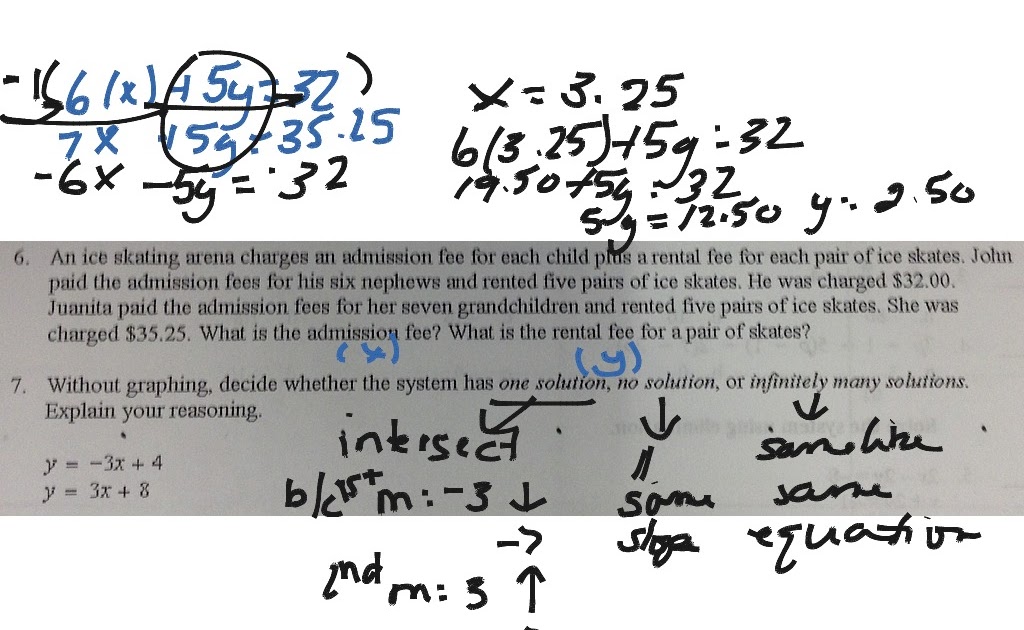 -1(6(x) + 5y = 32)
7x + 5y = 35.25
-6x - 5y = -32
x = 3.25
6(3.25) + 5y = 32
19.50 + 5y = 32
5y = 12.50 y = 2.50
6. An ice skating arena charges an admission fee for each child plus a rental fee for each pair of ice skates. John
paid the admission fees for his six nephews and rented five pairs of ice skates. He was charged $32.00.
Juanita paid the admission fees for her seven grandchildren and rented five pairs of ice skates. She was
charged $35.25. What is the admission fee? What is the rental fee for a pair of skates?
(x) (y)
7. Without graphing, decide whether the system has one solution, no solution, or infinitely many solutions.
Explain your reasoning.
y = -3x + 4
y = 3x + 8
intersect
b/c 1st m: -3 ↓
→
2nd m: 3 ↑
↓
//
same
slope
↓
same line
same
equation